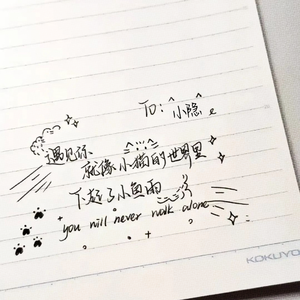 To: 小隐
遇见你
就像小猫的世界里
下起了小鱼雨
you will never walk alone
KOKUYO